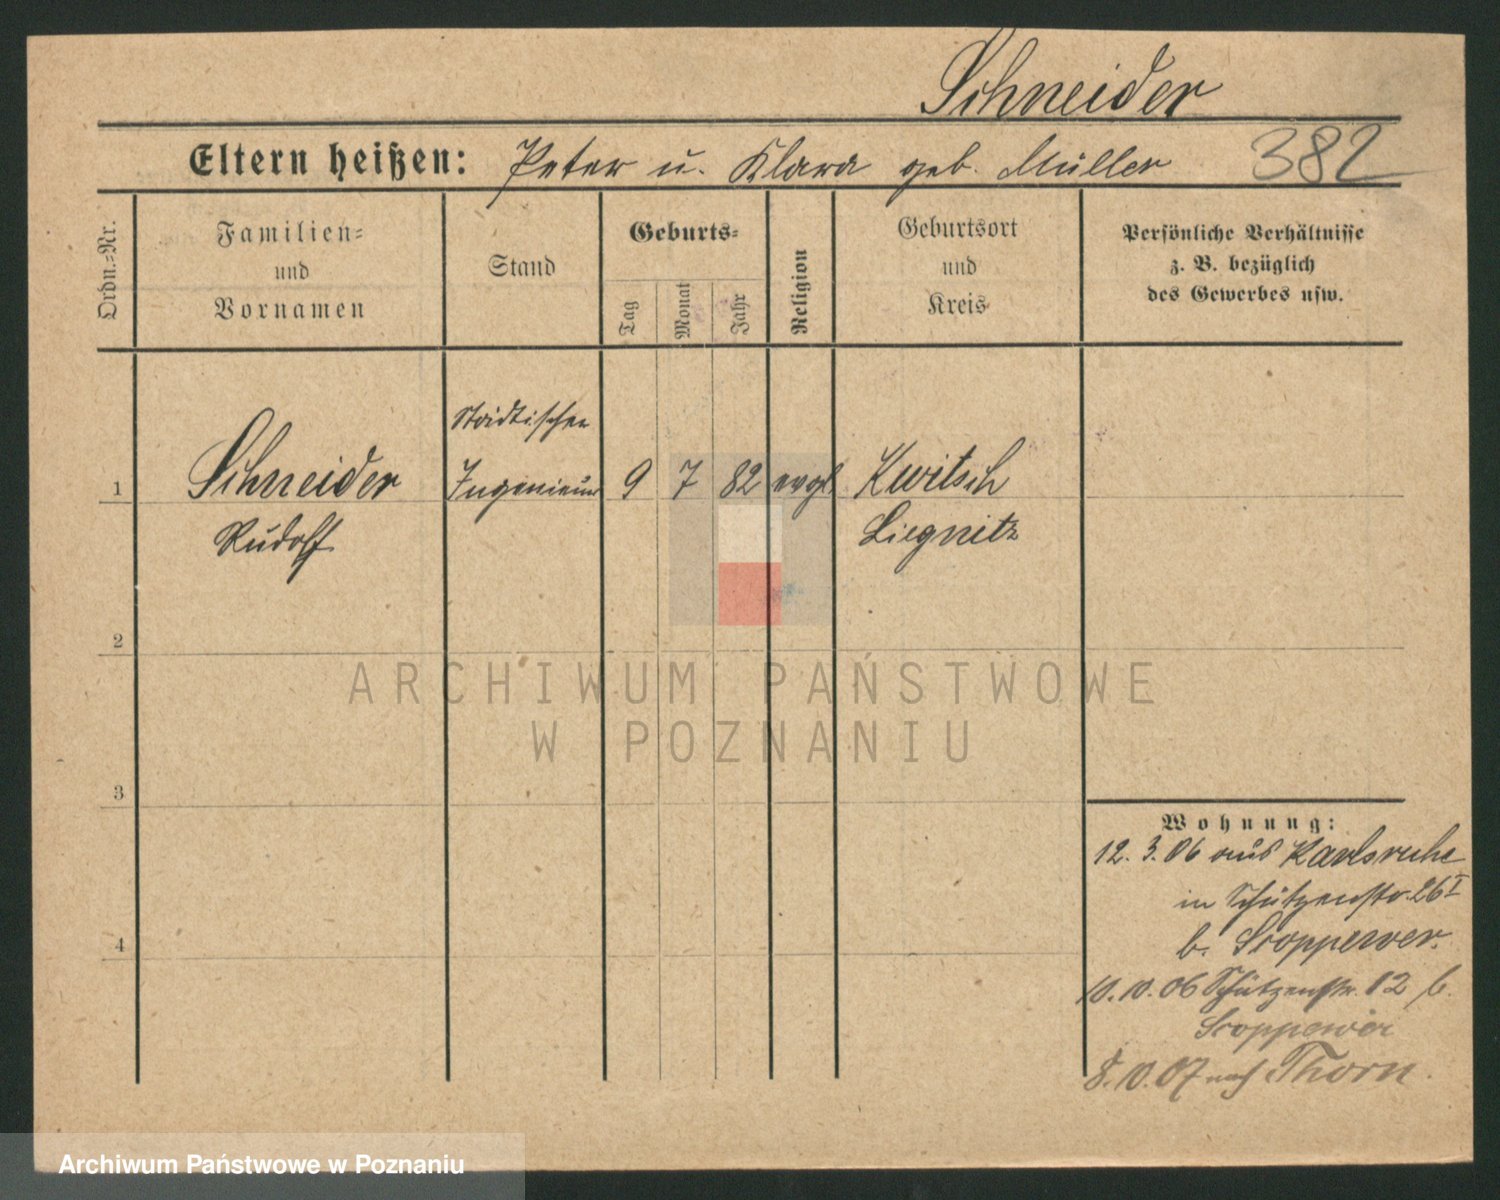 Schneider
Eltern heißen: Peter u. Klara geb. Müller 382
Ordn.-Nr.
Familien-
und
Vornamen
Stand
Geburts-
Tag
Monat
Jahr
Religion
Geburtsort
und
Kreis
Persönliche Verhältnisse
z. B. bezüglich
des Gewerbes usw.
städtischer
1 Schneider Ingenieur 9 7 82 evgl. Kwitsch
Rudolf Liegnitz
2
ARCHIWUM PAŃSTWOWE
W POZNANIU
3
Wohnung:
12. 3. 06 aus Karlsruhe
in Schützenstr. 26 I
b.
4
10. 10. 06 Schützenstr. 12 b.
8. 10. 07 nach Thorn.
Archiwum Państwowe w Poznaniu